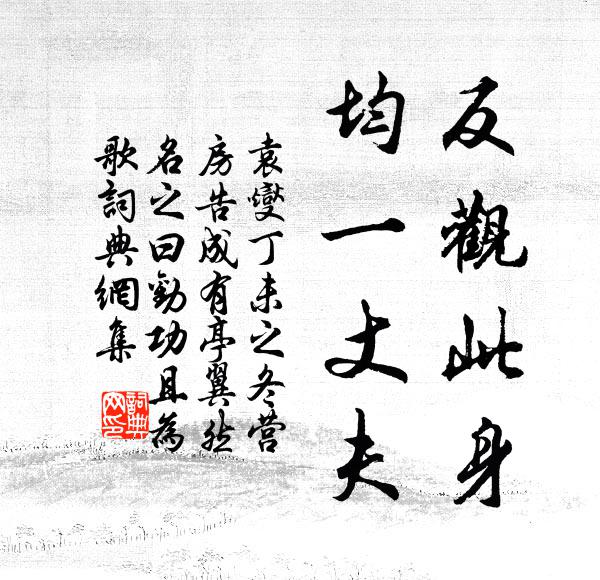 反觀此身
均一丈夫
袁燮丁未之冬營
房告成有亭翼然
名之曰勸功且為
歌詞典網集
詞典
网印